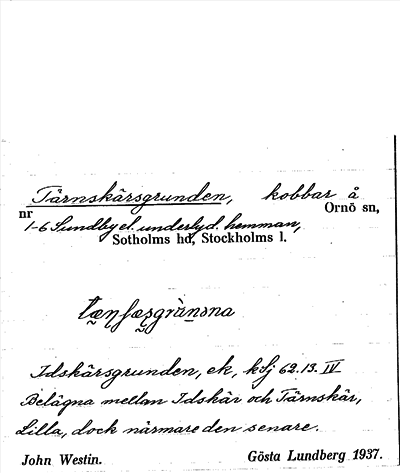 Tärnskärsgrunden, kobbar å
nr Ornö sn,
1-6 Sundby el. underlyd. hemman,
Sotholms hd, Stockholms l.
Idskärsgrunden, ek, kSj 62.13. IV
Belägna mellan Idskär och Tärnskär,
Lilla, dock närmare den senare.
John Westin. Gösta Lundberg 1937.